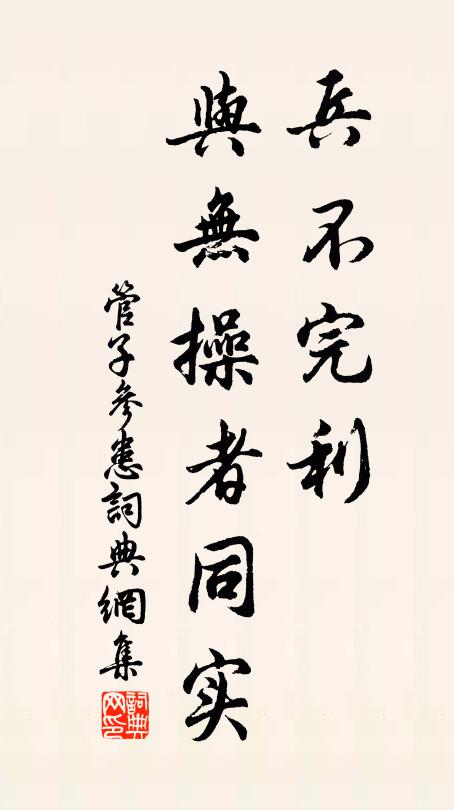 兵不完利
與無操者同实
管子參患詞典網集
詞典网印